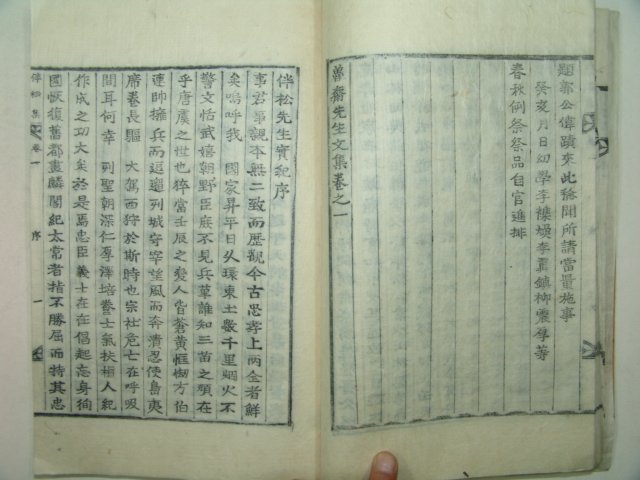 題郭公偉蹟來此稔聞所請當量施事
癸亥月日幼學李
鎮柳震厚等
春秋例祭祭品自官進排
魯齋先生文集卷之一
伴松先生實紀序
事君事親本無二致而歷觀今古忠孝上兩全者鮮
矣嗚呼我 國家昇平日久環東土數千里烟火不
警文恬武嬉朝野臣庶不見兵革誰知三苗之頑在
乎唐虞之世也猝當壬辰之變人皆蒼黃恇㥘方伯
連帥擁兵而逗遛列城守宰望風而奔潰忍使島夷
席卷長驅 大駕而狩於斯時也宗社危亡在呼吸
間耳何幸 列聖朝深仁厚澤培養士氣扶植人紀
作成之功大矣於是焉忠臣義士在在倡起忘身徇
國恢復舊都畫麟閣紀太常者指不勝屈而特其忠
伴松集 卷一 序 一